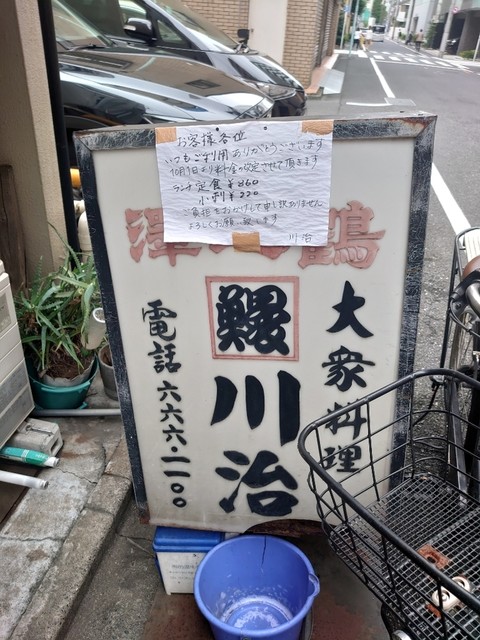 お客様各位
いつもご利用ありがとうございます
10月1日より料金改定させて頂きます
ランチ定食 ¥860
小別 ¥220
ご負担をおかけして申し訳ありません
よろしくお願い致します
川治
鶴
澤
大衆料理
鰻
川治
電話 六六六・二一〇〇